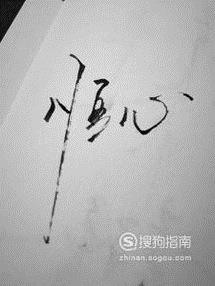 恒心
搜狗指南
zhinan.sogou.com